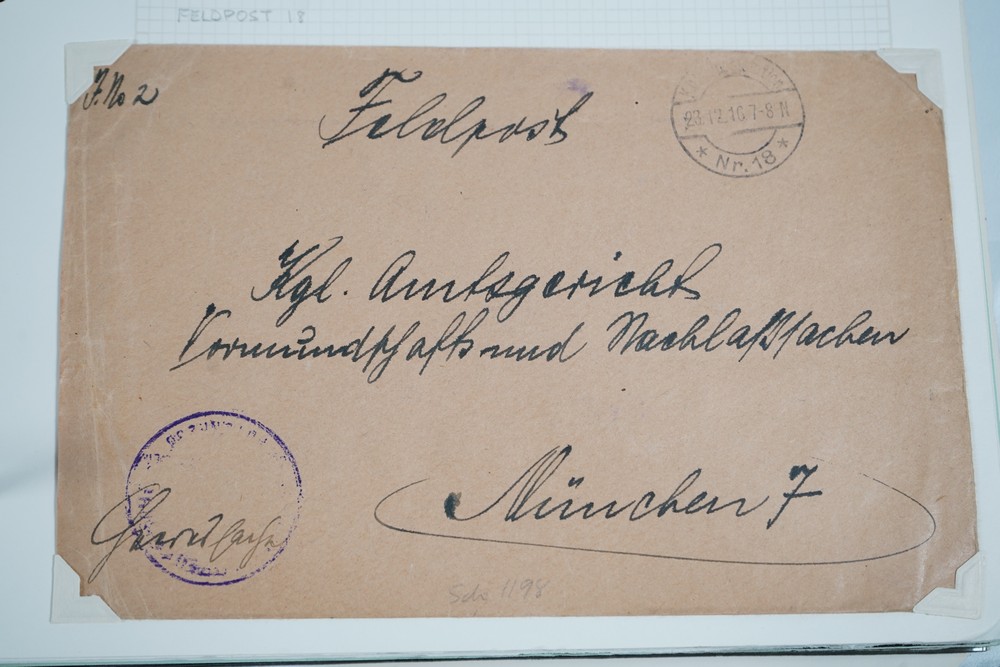 FELDPOST 18
J. No 2
Feldpost
23.12.16.7-8 N
* Nr. 18 *
Kgl. Amtsgericht
Vormundschafts- und Nachlaßsachen
München 7
Heeressache
1198